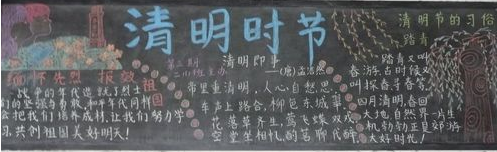 清明时节
缅怀先烈 报效祖国
战争的年代造就了烈士
们的坚强与勇敢,和平年代同样
会把我们培养成材,让我们努力学
习共创祖国美好明天!
第三期
清明即事
——(唐)孟浩然
帝里重清明,人心自愁思。
车声上路合,柳色东城翠。
花落草齐生,莺飞蝶双戏。
空堂坐相忆,酌茗聊代醉。
清明节的习俗
踏青
踏青又叫
春游,古时候又
叫探春、寻春等。
四月清明,春回
大地,自然界一片生
机勃勃,正是郊游
大好时光!